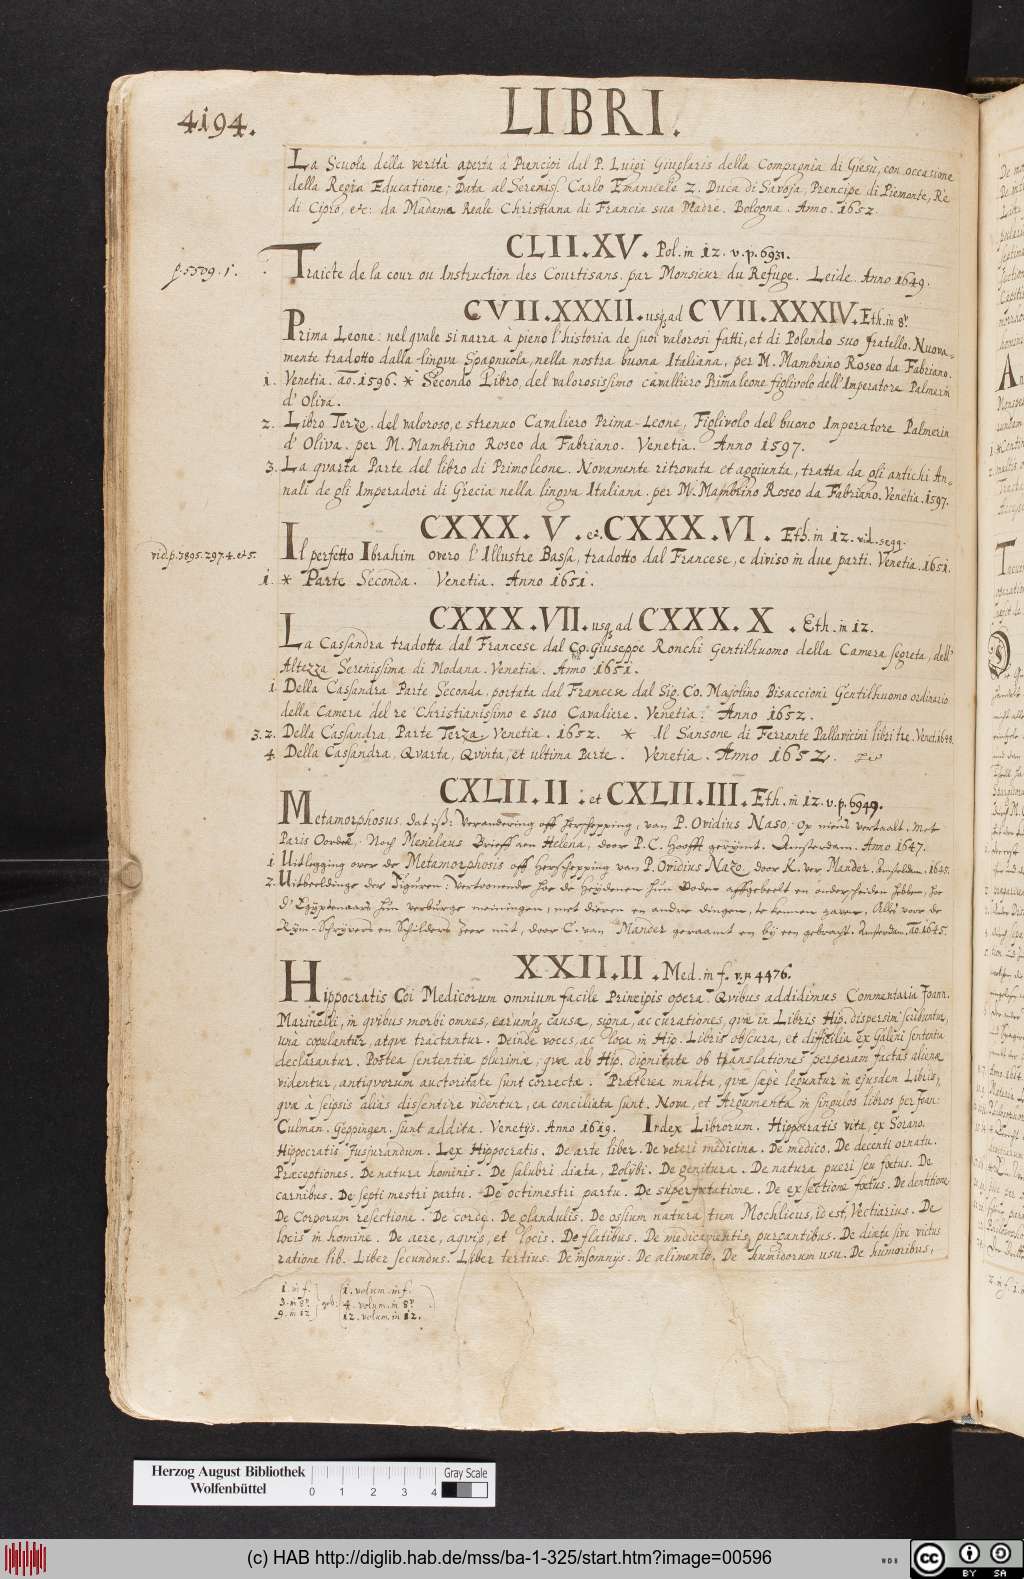 4194.
LIBRI.
La Scuola della verità aperta à Prencipi dal P. Luigi Giuglaris della Compagnia di Giesù, con occasione
della Regia Educatione; Data al Sereniss. Carlo Emanuele 2. Duca di Savoja, Prencipe di Piemonte, Rè
di Cipro, etc: da Madama Reale Christiana di Francia sua Madre. Bologna. Anno. 1652.
CLII.XV. Pol. in 12. v.p. 6931.
p. 5509. 1.
Traicte de la cour ou Instruction des Courtisans. par Monsieur du Refuge. Leide. Anno 1649.
CVII.XXXII. usq ad CVII.XXXIV. Eth. in 8º.
Prima Leone: nel qvale si narra à pieno l'historia de suoi valorosi fatti, et di Polendo suo fratello. Nuova=
mente tradotto dalla lingva Spagnuola, nella nostra buona Italiana, per M. Mambrino Roseo da Fabriano.
1. Venetia. ao. 1596. * Secondo Libro, del valorosissimo cavalliero Primaleone figlivolo dell'Imperatore Palmerin
d'Oliva.
2. Libro Terzo. del valoroso, e strenuo Cavaliero Prima-Leone, Figlivolo del buono Imperatore Palmerin
d'Oliva. per M. Mambrino Roseo da Fabriano. Venetia. Anno 1597.
3. La qvarta Parte del libro di Primoleone. Novamente ritrovata et aggiunta, tratta da gli antichi An=
nali de gli Imperadori di Grecia nella lingva Italiana. per M. Mambrino Roseo da Fabriano. Venetia. 1597.
CXXX.V. et. CXXX.VI. Eth. in 12. vid. segg.
vid. p. 3895. 2974. et 5.
Il perfetto Ibrahim overo l'Illustre Bassa, tradotto dal Francese, e diviso in due parti. Venetia. 1651.
1. * Parte Seconda. Venetia. Anno 1651.
CXXX.VII. usq ad CXXX.X. Eth. in 12.
La Cassandra tradotta dal Francese dal Co. Giuseppe Ronchi Gentilhuomo della Camera segreta, dell'
Altezza Serenissima di Modana. Venetia. Anno 1651.
1. Della Cassandra Parte Seconda, portata dal Francese dal Sig. Co. Majolino Bisaccioni Gentilhuomo ordinario
della Camera del re Christianissimo e suo Cavaliere. Venetia. Anno 1652.
3. 2. Della Cassandra Parte Terza. Venetia. 1652. * Il Sansone di Ferrante Pallavicini libri tre. Venet. 1648.
4. Della Cassandra, Qvarta, Qvinta, et ultima Parte. Venetia. Anno 1652.
CXLII.II. et CXLII.III. Eth. in 12. v.p. 6949.
Metamorphosis. Dat is: Verandering off Herschepping, van P. Ovidius Naso. Op nieus vertaalt. Met
Paris Oordel. Noch Menelaus Brieff aen Helena, door P. C. Hoofft gerijmt. Amsterdam. Anno 1647.
1. Uitlegging over de Metamorphosis off Herschepping van P. Ovidius Nazo, door K. ver Mander. Amsteldam. 1645.
2. Uitbeeldinge der Figuren: Vertoonende hoe de Heydenen hun Goden affgebeelt en onderscheiden hebben, hoe
d'Egyptenaars hun verburge meiningen, met dieren en andre dingen, te kennen gaven. Alles voor de
Rym-Schryvers en Schilders zeer nut, door C. van Mander geraamt en by een gebracht. Amsterdam. ao. 1645.
XXII.II. Med. in f. v.p. 4476.
Hippocratis Coi Medicorum omnium facile Principis opera. Qvibus addidimus Commentaria Joann.
Marinelli, in qvibus morbi omnes, earumq causæ, signa, ac curationes, qvæ in Libris Hip. dispersim sciuntur,
unà copulantur, atqve tractantur. Deinde voces, ac loca in Hip. Libris obscura, et difficilia ex Galeni sententia
declarantur. Postea sententiæ plurimæ, qvæ ab Hip. dignitate ob translationes perperam factas alienæ
videntur, antiqvorum auctoritate sunt correctæ. Præterea multa, qvæ sæpè leguntur in ejusdem Libris,
qvæ à seipsis aliàs dissentire videntur, ea conciliata sunt. Nova, et Argumenta in singulos libros per Joan:
Culman. Geppingen. sunt addita. Venetijs. Anno 1619. Index Librorum. Hippocratis vita, ex Sorano.
Hippocratis Jusjurandum. Lex Hippocratis. De arte liber. De veteri medicina. De medico. De decenti ornatu.
Præceptiones. De natura hominis. De salubri diæta. Polybi. De genitura. De natura pueri seu fœtus. De
carnibus. De septimestri partu. De octimestri partu. De superfœtatione. De exsectione fœtus. De dentitione.
De Corporum resectione. De corde. De glandulis. De ossium natura tum Mochlicus, id est, Vectiarius. De
locis in homine. De aere, aqvis, et locis. De flatibus. De medicamentis purgantibus. De diæta sive victus
ratione lib. Liber secundus. Liber tertius. De insomnijs. De alimento. De humidorum usu. De humoribus,
1. in f. 1. volum. in f.
3. in 8º. geb: 4. volum. in 8º.
9. in 12. 12. volum. in 12.
Herzog August Bibliothek
Wolfenbüttel
0 1 2 3 4
Gray Scale
(c) HAB http://diglib.hab.de/mss/ba-1-325/start.htm?image=00596
WDB
cc BY SA